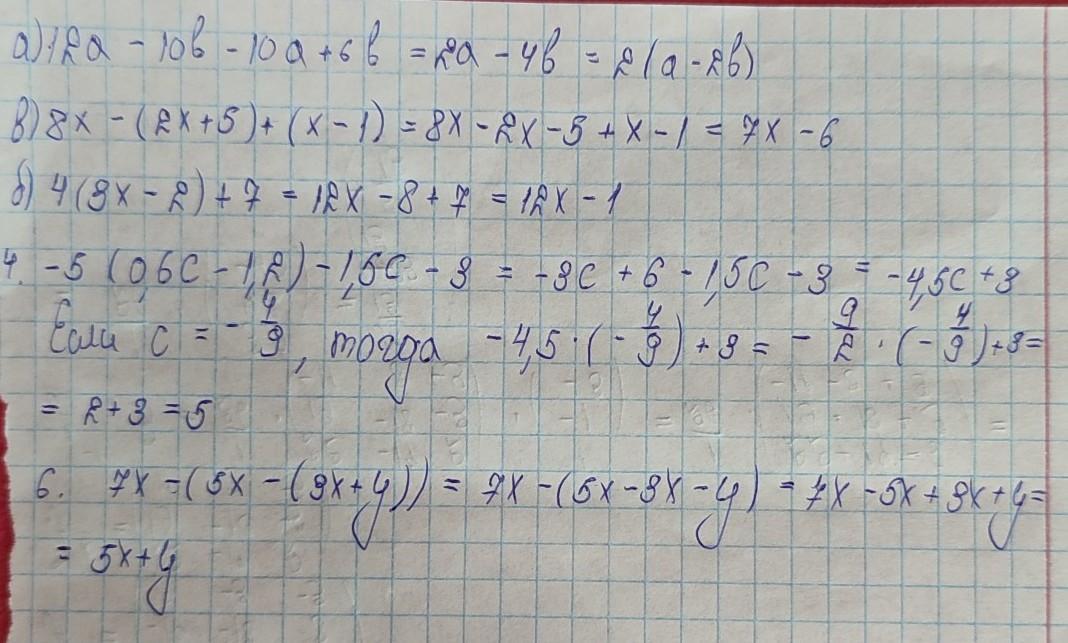 а) 12a - 10b - 10a + 6b = 2a - 4b = 2(a - 2b)
в) 8x - (2x+5) + (x - 1) = 8x - 2x - 5 + x - 1 = 7x - 6
б) 4(3x - 2) + 7 = 12x - 8 + 7 = 12x - 1
4. -5 (0,6c - 1,2) - 1,5c - 3 = -3c + 6 - 1,5c - 3 = -4,5c + 3
Если c = -4/9, тогда -4,5 · (-4/9) + 3 = -9/2 · (-4/9) + 3 =
= 2 + 3 = 5
6. 7x - (5x - (3x + y)) = 7x - (5x - 3x - y) = 7x - 5x + 3x + y =
= 5x + y